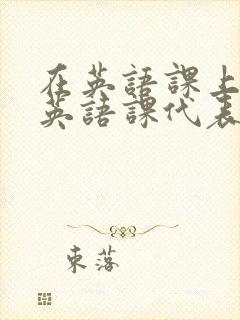 在英語課上
英語課代表
東落